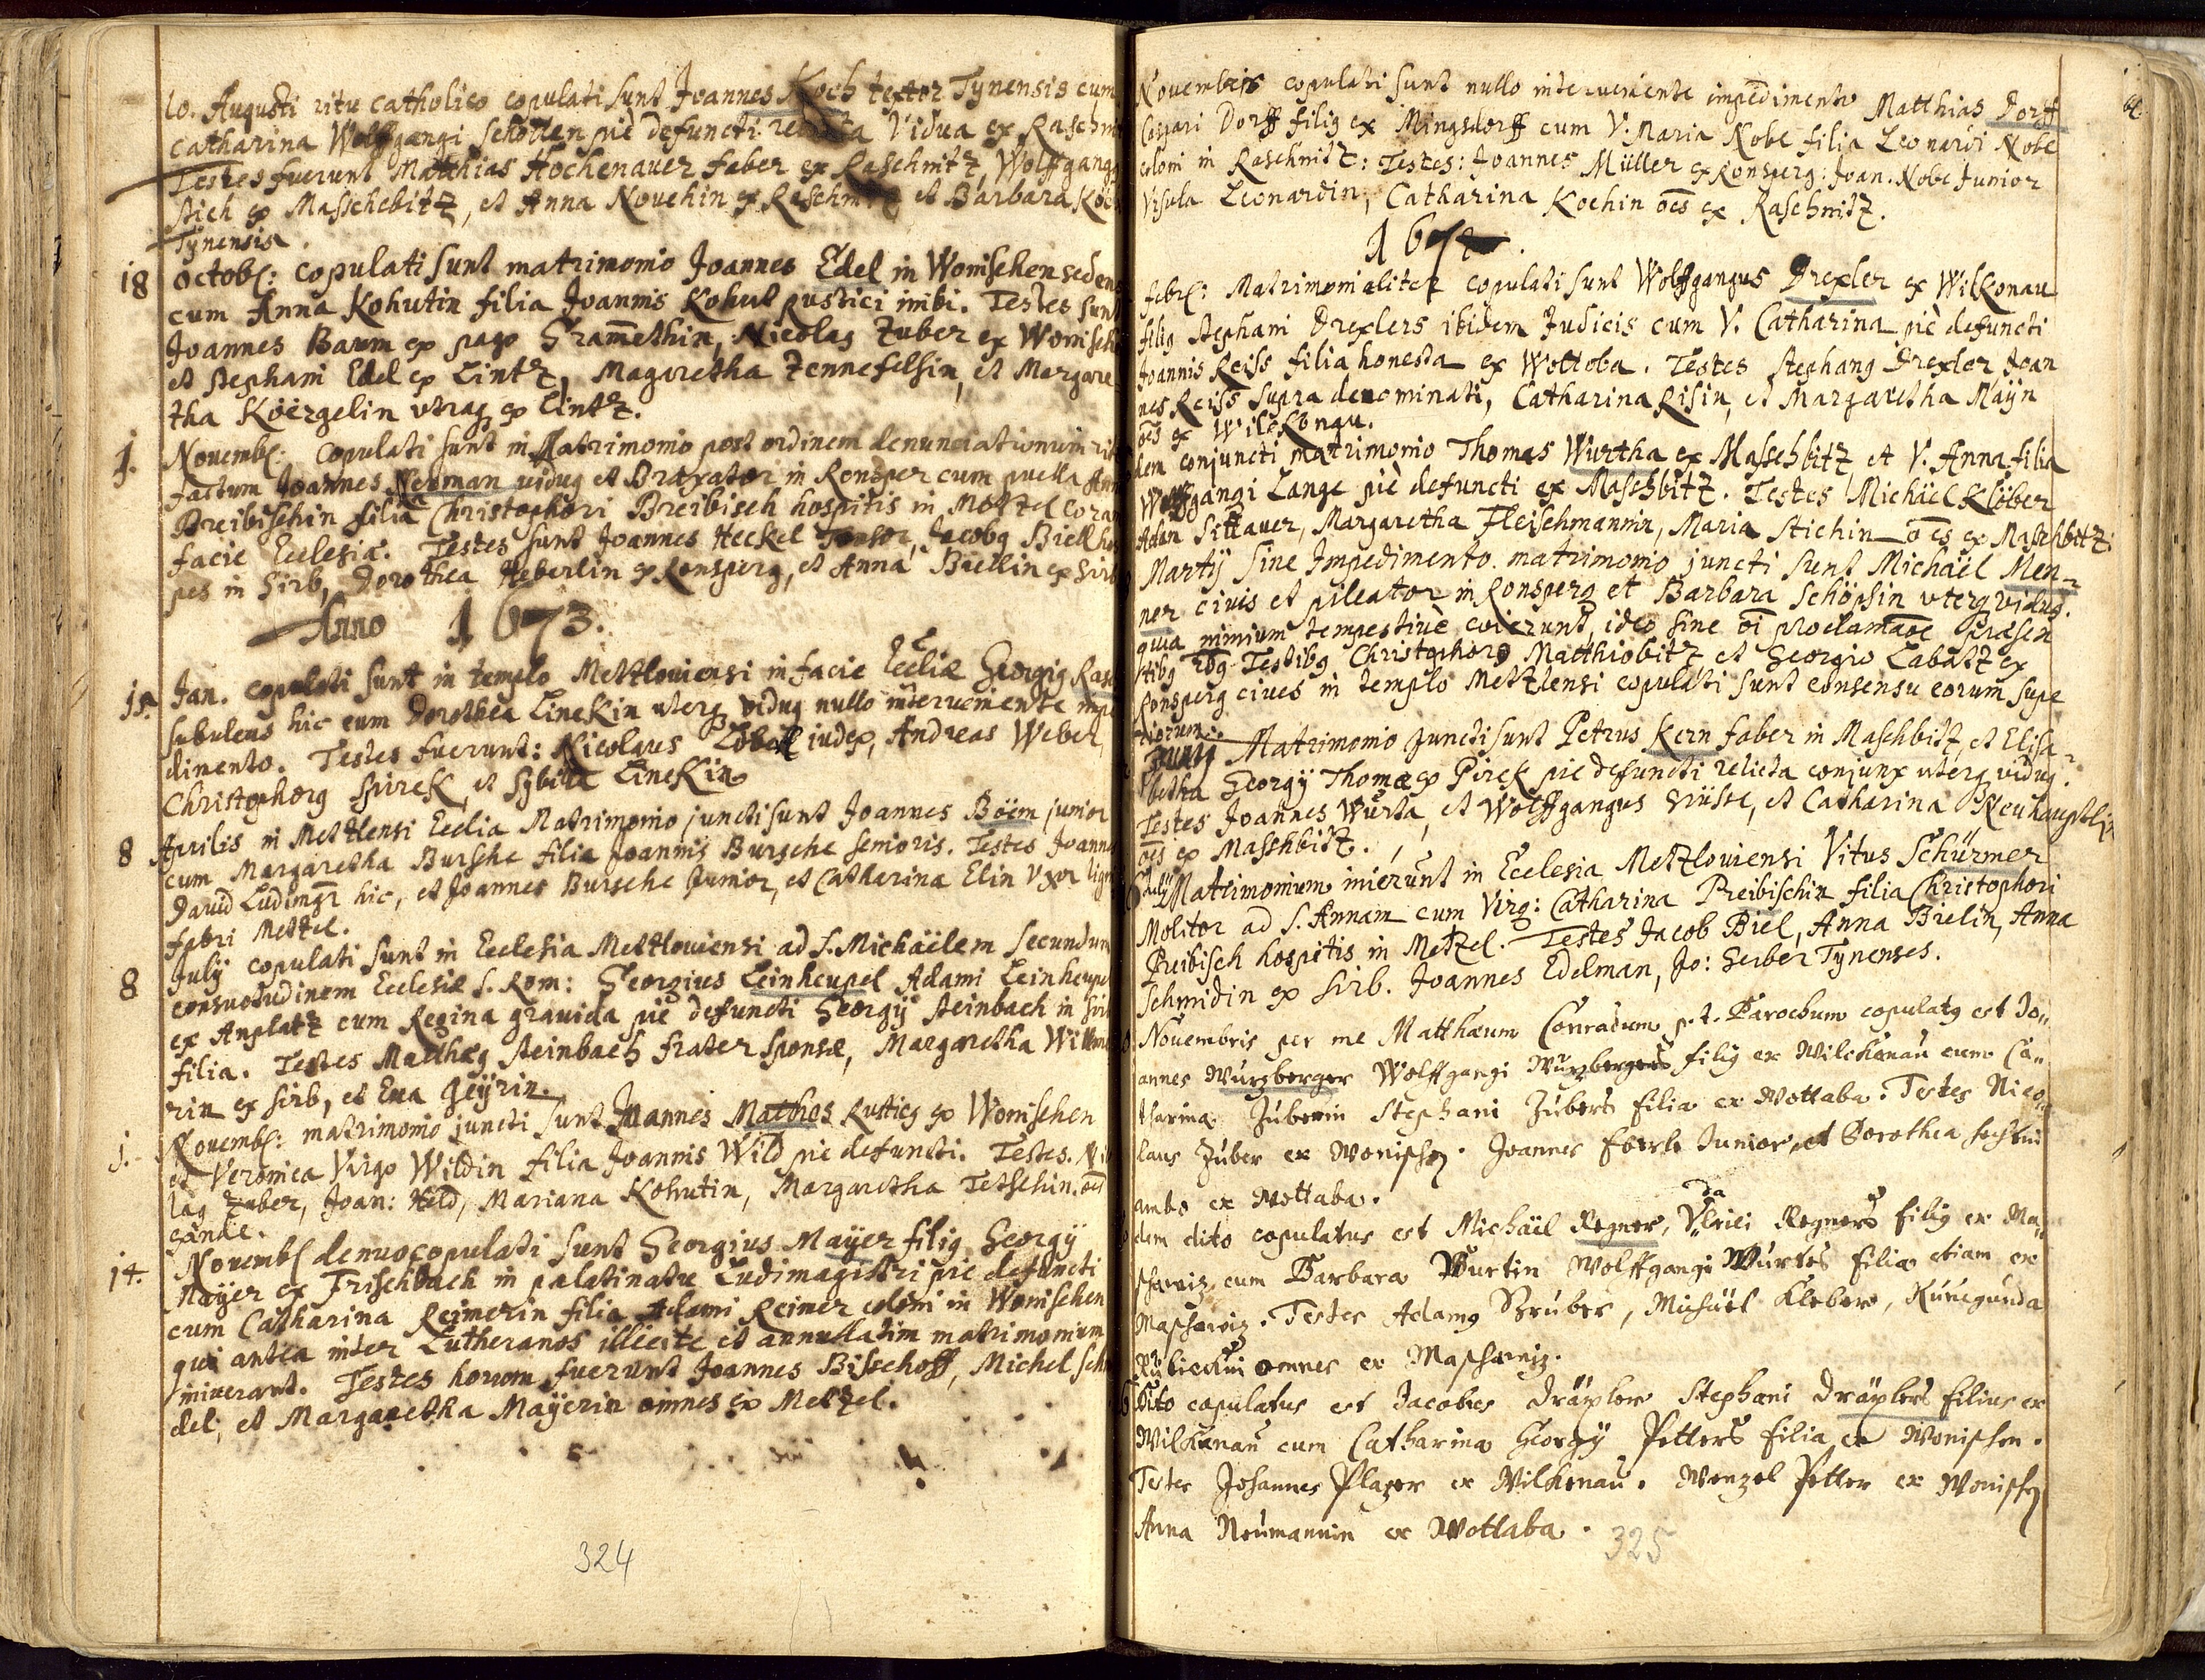 10. Augusti ritu catholico copulati sunt Joannes Koch textor Tynensis cum
Catharina Wolffgangi Schotten piè defuncti relicta Vidua ex Raschni
Testes fuerunt Matthias Hochenauer faber ex Raschnitz, Wolffgang
stich ex Masschebitz, et Anna Novehin ex Raschnitz et Barbara Koch
Tynensis.
18 Octob: copulati sunt matrimonio Joannes Edel in Wonischen seden
cum Anna Kohutin filia Joannis Kohut rustici inibi. Testes sunt
Joannes Baum ex pago Gramethin, Nicolas Zuber ex Wonisch
et Stephani Edel ex Lintz, Magaretha Zennefelsin, et Margare
tha Köergelin utraq ex Lintz.
1. Novemb: copulati sunt in Matrimonio post ordinem denunciationum rit
factum Joannes Neoman vidug et Braxator in Ronsper cum puella Ann
Breibischin filia Christophori Breibisch hospitis in Metzel cora
facie Ecclesiæ. Testes sunt Joannes Heckel Tonsor, Jacobg Biell ho
pes in Sirb, Dorothea Heberlin ex Ronsperg, et Anna Biellin ex Sirb
Anno 1673.
Jan. copulati sunt in templo Metzloviensi in facie Eccliæ Georgig Ras
subuleus hic cum Dorothea Linekin uterq vidug nullo interveniente impe
dimento. Testes fuerunt: Nicolaus Löbell iudex, Andreas Weber,
Christophorg Spirek, et Sybilla Linekin
8 Aprilis in Metzlensi Ecclia Matrimonio juncti sunt Joannes Böem junior
cum Margaretha Bursche filia Joannis Bursche senioris. Testes Joanne
David Ludimgr hic, et Joannes Bursche Junior, et Catharina Elin Uxor lign
fabri Metzel.
8 July copulati sunt in Ecclesia Metzloviensi ad S. Michäelem secundum
consuetudinem Ecclesiæ S. Rom: Georgius Leinheupel Adami Leinheupe
ex Anplatz cum Regina gravida piè defuncti Georgÿ Steinbach in Sirb
filia. Testes Mathæg Steinbach frater sponsæ, Margaretha Wilm
rin ex Sirb, et Eva Geÿrin.
1. Novemb: matrimonio juncti sunt Joannes Mathes Rusticg ex Wonischen
et Veronica Virgo Wildin filia Joannis Wild piè defuncti. Testes. Ni
lag Zuber, Joan: Held, Mariana Kohutin, Margaretha Tetschin. oēs

14. Novemb denuo copulati sunt Georgius Maÿer filig Georgÿ
Maÿer ex Frischbach in palatinatu Ludimagistri piè defuncti
cum Catharina Reimerin filia Adami Reimer coloni in Wonischen
qui antea inter Lutheranos illicite et annullatim matrimonium
inierant. Testes horum fuerunt Joannes Bisschoff, Michel Sch
del, et Margaretha Maÿerin omnes ex Metzel.
324
Novembris copulati sunt nullo interveniente impedimento Matthias Dorff
Caspari Dorff filig ex Mingsdorff cum V. Maria Nobe filia Leonardi Nobe
coloni in Raschnitz: Testes: Joannes Müller ex Ronsperg: Joan. Nobe Junior
Visula Leonardin, Catharina Kochin oēs ex Raschnitz.
167
febr: Matrimonialiter copulati sunt Wolffgangus Drexler ex Wilkonau
filig Stephani Drexlers ibidem Judicis cum V. Catharina piè defuncti
Joannis Reiss filia honesta ex Wottoba. Testes Stephang Drexler Joan
nes Reiss supra denominati, Catharina Risin, et Margaretha Maÿn
oēs ex Wilkonau.
dem conjuncti matrimonio Thomas Wurtha ex Masschbitz et V. Anna filia
Wolffgangi Lange piè defuncti ex Maschbitz. Testes Michäel Klöber
Adan Sittauer, Margaretha Fleischmannin, Maria Stichin oēs ex Maschbitz
Martÿ sine Impedimento matrimonio juncti sunt Michäel Men-
ner civis et pileator in Ronsperg et Barbara Schöpsin uterq vidug.
quia nimium tempestivè coierunt, ideo sine oī proclamaōe præsen
stibg Testibg Christophoro Matthiobitz et Georgio Labatz ex
Ronsperg cives in templo Metzlensi copulati sunt consensu eorum supe
riorum.
Matrimonio juncti sunt Petrus Kern faber in Maschbitz, et Elisa-
betha Georgÿ Thomæ ex Pirek piè defuncti relicta conjunx uterq vidug
Testes Joannes Wurta, et Wolffgangus Grüsse, et Catharina Neuhauptlin
oēs ex Masshbitz.
July Matrimonium inierunt in Ecclesia Metzloviensi Vitus Schürmer
Molitor ad S. Annam cum Virg: Catharina Preibischin filia Christophori
Preibisch hospitis in Metzel. Testes Jacob Biel, Anna Bielin, Anna
Schmidin ex Sirb. Joannes Edelman, Jo: Gerber Tynenses.
Novembris per me Matthæum Conradum p. t. Parochum copulatg est Jo„
annes Wurzberger Wolffgangi Wurzbergers filig ex Wilckonau cum Ca„
tharina Zuberin Stephani Zubers filia ex Wottaba. Testes Nico„
laus Zuber ex Wonischen. Joannes Eberle Junior, et Dorothea
ambo ex Wottaba.
dem dito copulatus est Michäel Regner, Uldarici Regners filig ex Ma„
schawiz cum Barbara Wurtin Wolffgangi Wurtes filia etiam ex
Maschawiz. Testes Adamg Gruber, Michäel Kleber, Kunegunda
omnes ex Maschawiz.
Dito copulatus est Jacobus Dräxler Stephani Dräxlers filius ex
Wilkanau cum Catharina Georgÿ Petters filia ex Wonischen.
Testes Johannes Plazer ex Wilkenau. Wenzel Petter ex Wonischen
Anna Neumannin ex Wottaba.
325